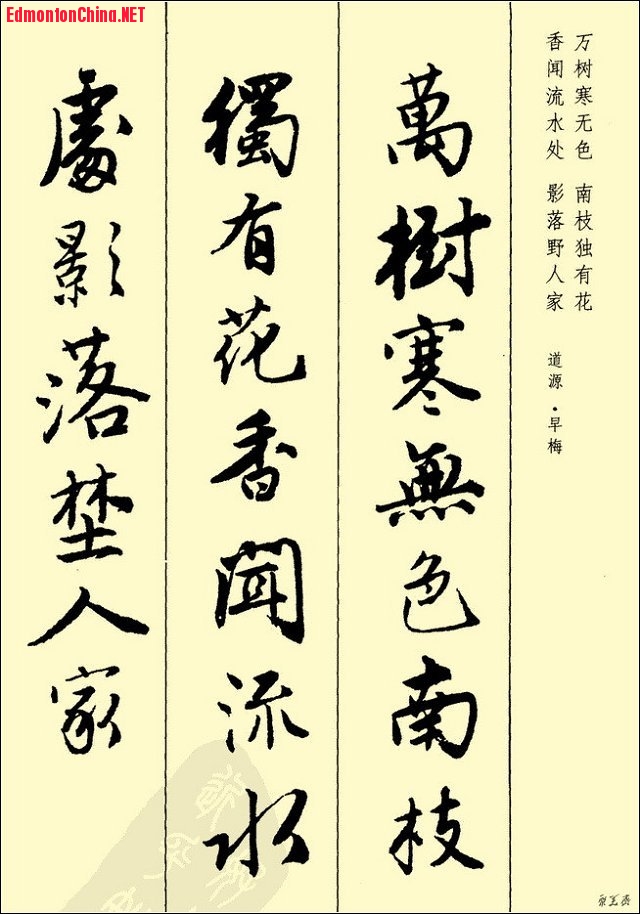 EdmontonChina.NET
万树寒无色 南枝独有花
香闻流水处 影落野人家
道源·早梅
萬樹寒無色南枝
獨有花香聞流水
處影落埜人家